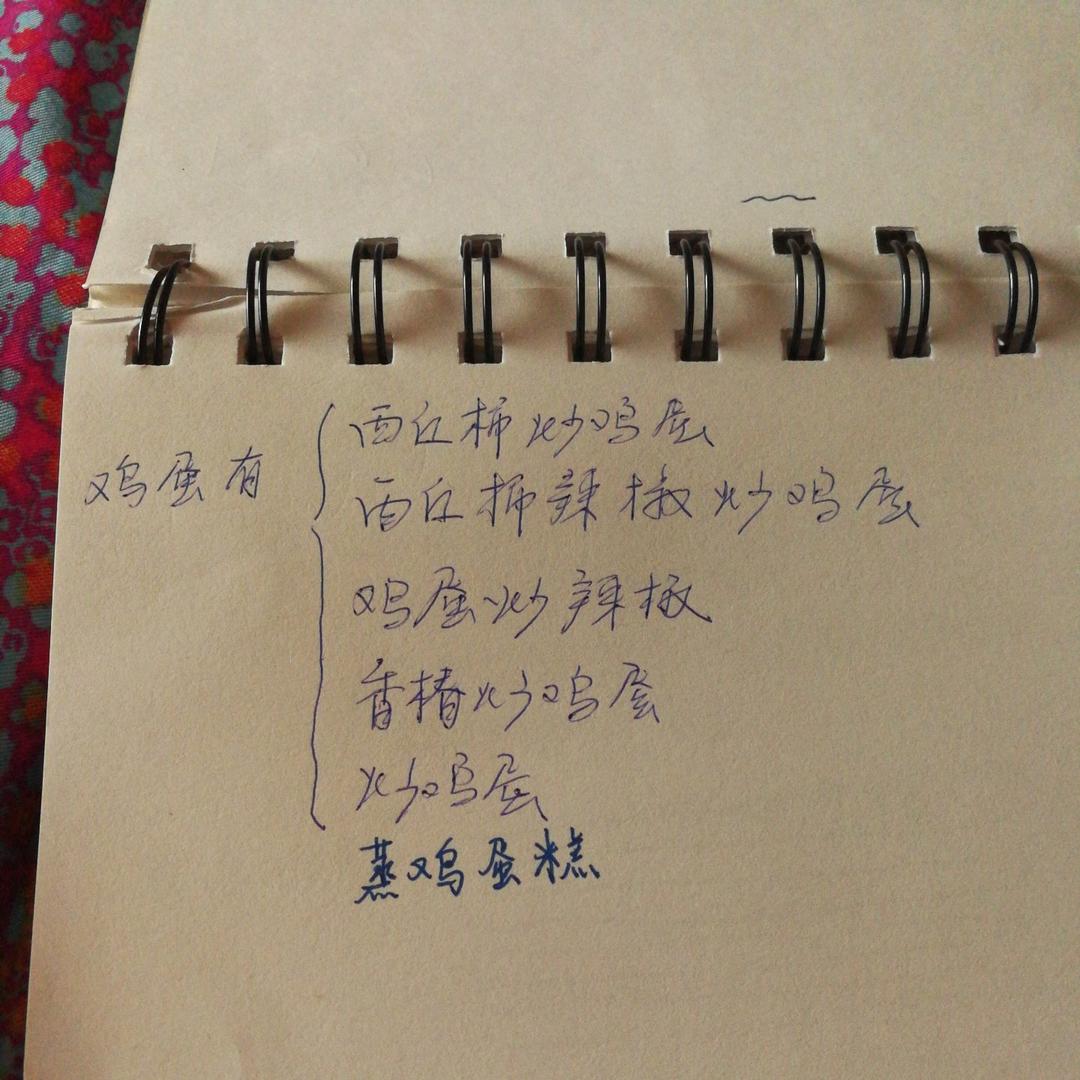 鸡蛋有
西红柿炒鸡蛋
西红柿辣椒炒鸡蛋
鸡蛋炒辣椒
香椿炒鸡蛋
炒鸡蛋
蒸鸡蛋糕